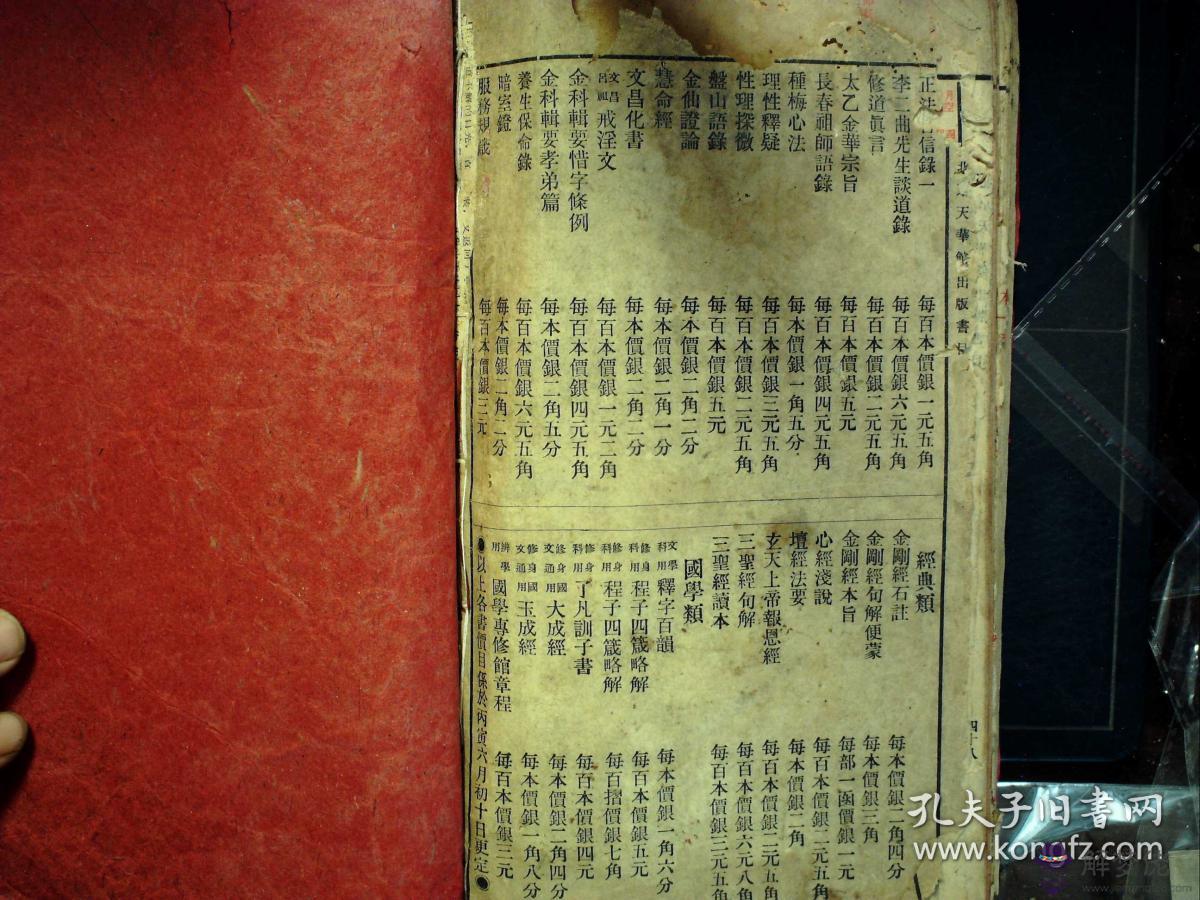 天華館出版書目
四十八
正法 信錄一 每百本價銀一元五角
李二曲先生談道錄 每百本價銀六元五角
修道眞言 每百本價銀二元五角
太乙金華宗旨 每百本價銀五元
長春祖師語錄 每百本價銀四元五角
種梅心法 每本價銀一角五分
理性釋疑 每百本價銀三元五角
性理探微 每百本價銀二元五角
盤山語錄 每百本價銀五元
金仙證論 每本價銀二角二分
慧命經 每本價銀二角一分
文昌化書 每本價銀二角二分
文昌呂祖戒淫文 每百本價銀一元二角
金科輯要惜字條例 每百本價銀四元五角
金科輯要孝弟篇 每本價銀二角五分
養生保命錄 每百本價銀六元五角
暗室鐙 每本價銀二角二分
服務規箴 每百本價銀三元
經典類
金剛經石註 每本價銀二角四分
金剛經句解便蒙 每本價銀三角
金剛經本旨 每部一函價銀一元
心經淺說 每百本價銀二元五角
壇經法要 每本價銀二角
玄天上帝報恩經 每百本價銀二元五角
三聖經句解 每百本價銀六元八角
三聖經讀本 每百本價銀三元五角
國學類
文學科用釋字百韻 每本價銀一角六分
修身科用程子四箴略解 每百本價銀五元
修身科用程子四箴略解 每百摺價銀七角
修身科用了凡訓子書 每百本價銀四元
修身國文通用大成經 每本價銀二角四分
修身國文通用玉成經 每本價銀一角八分
辨學用國學專修館章程 每百本價銀三元
●以上各書價目係於丙寅六月初十日更定●
孔夫子旧书网
www.kongfz.com
解梦佬